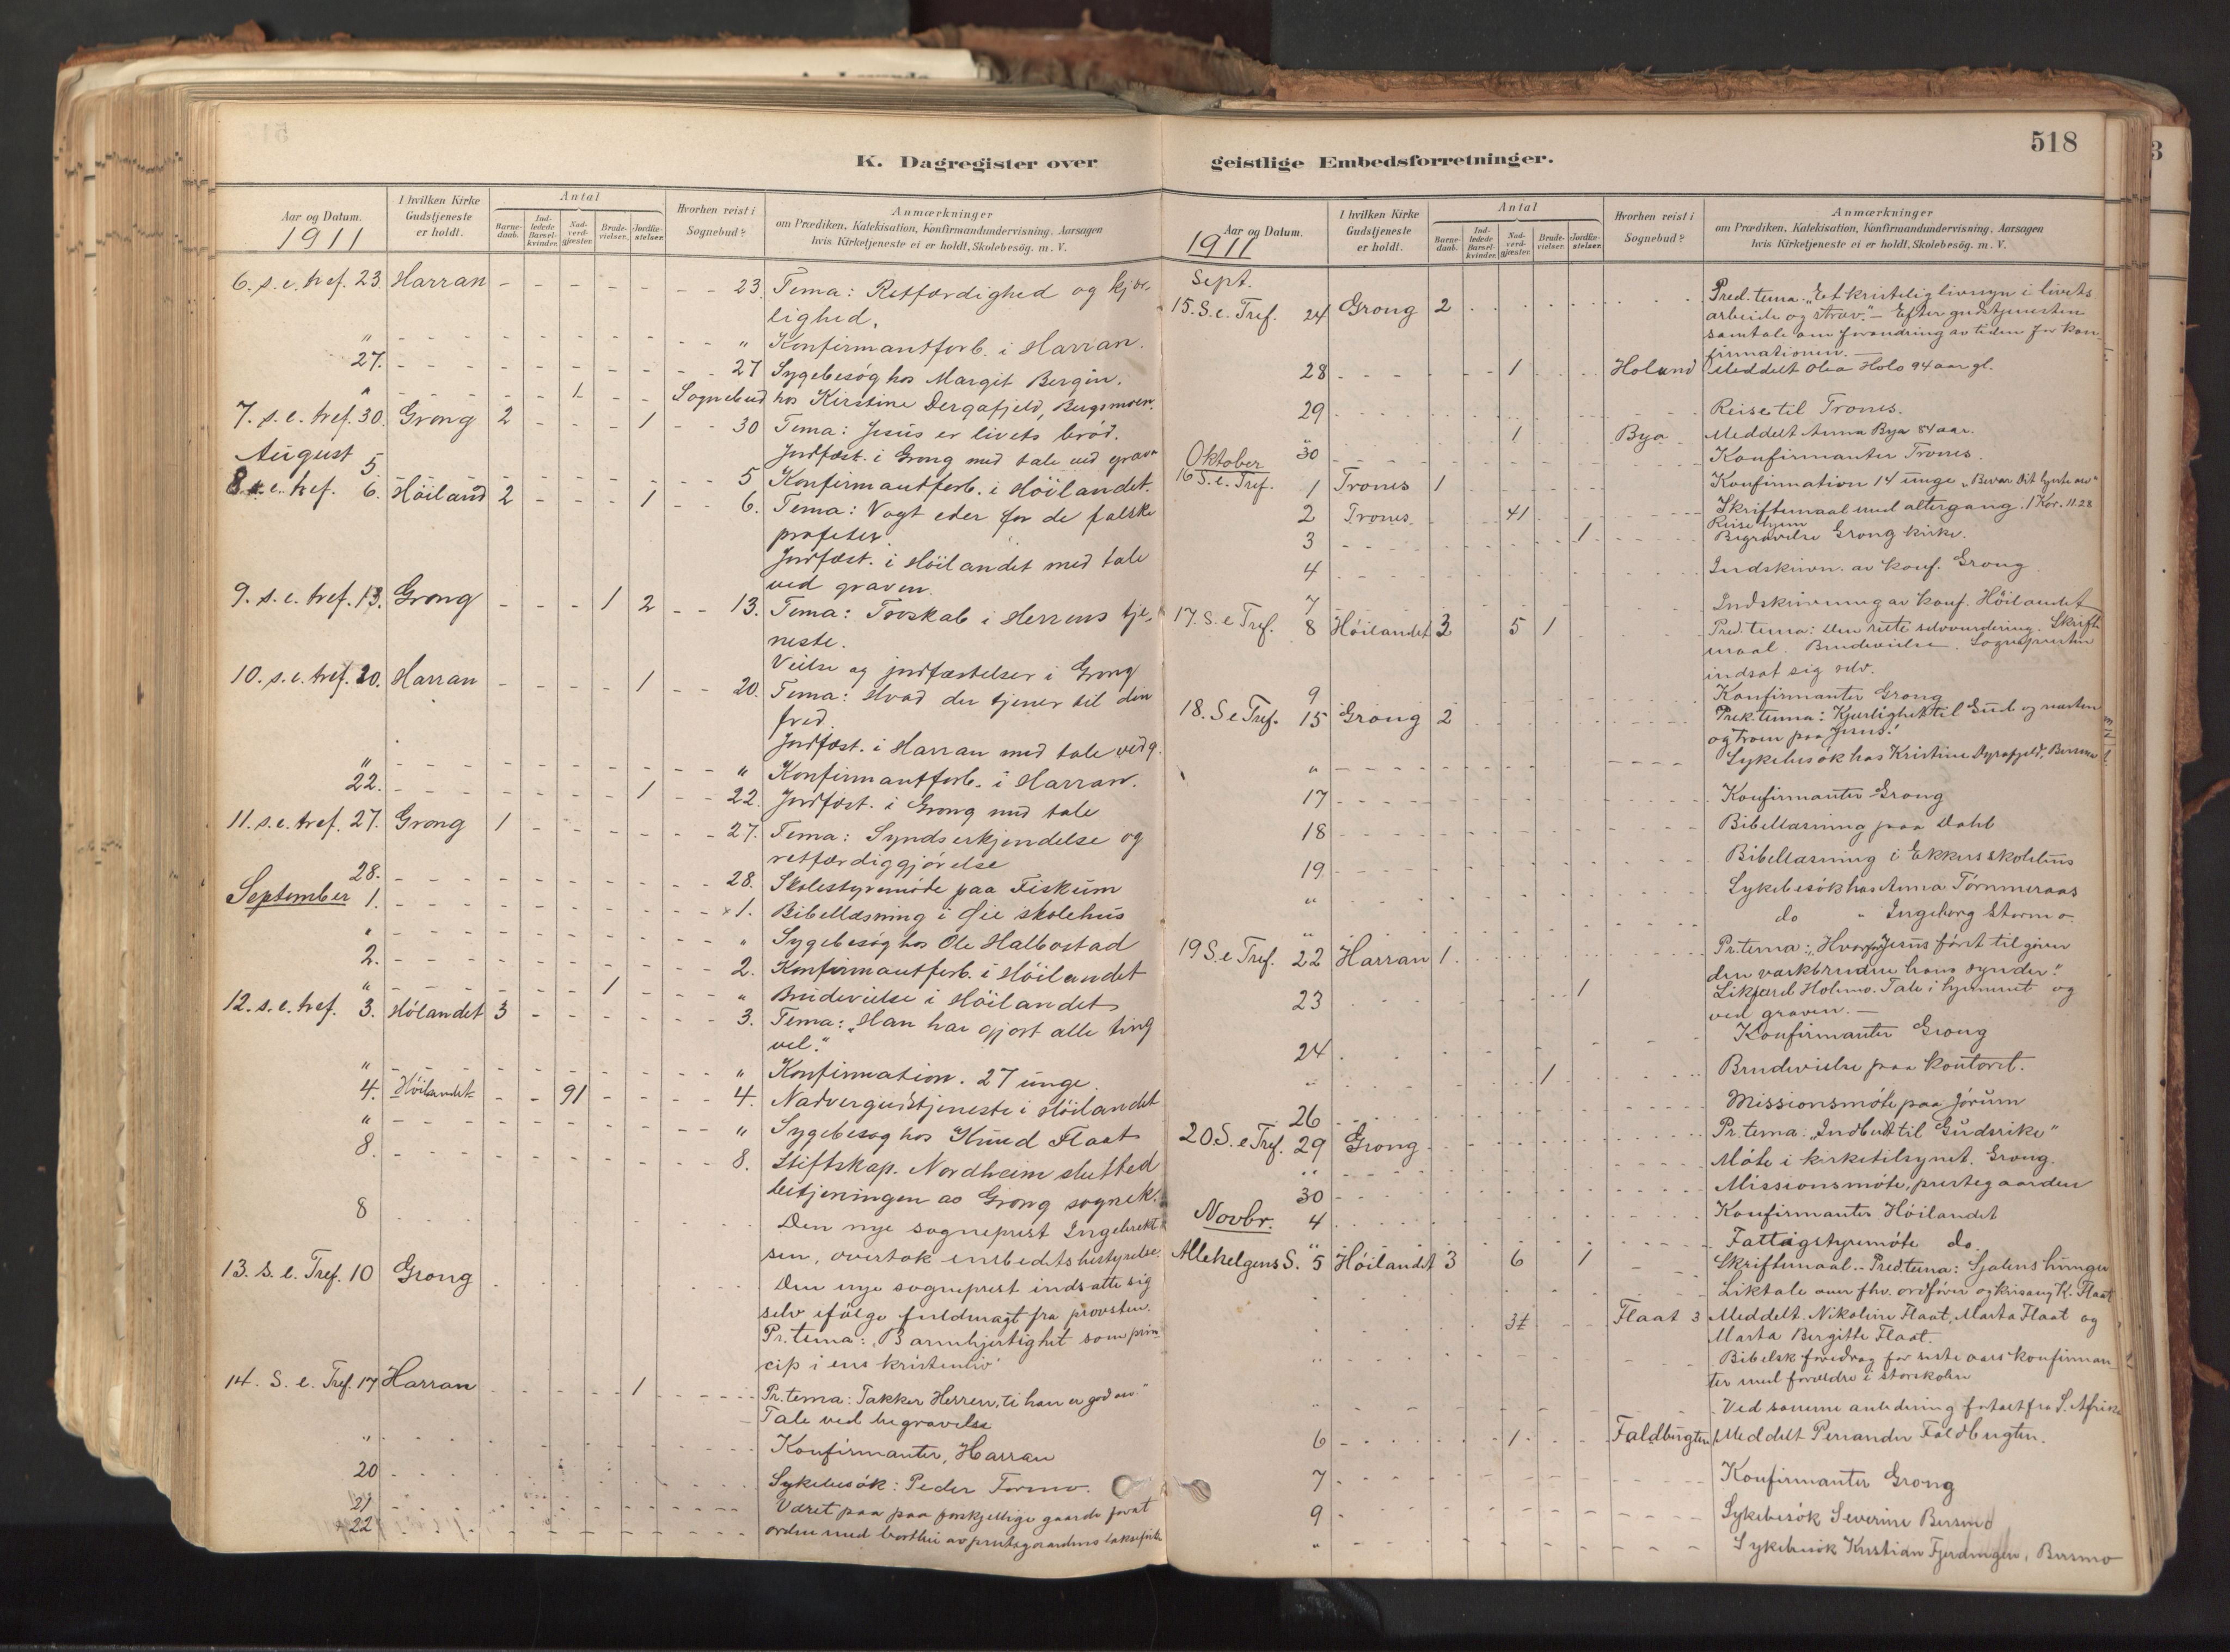 518
K. Dagregister over geistlige Embedsforretninger.
Aar og Datum. 1911
I hvilken Kirke Gudstjeneste er holdt.
Antal
Barne-daab. Ind-ledede Barsel-kvinder. Nad-verd-gjester. Brude-vielser. Jordfæ-stelser.
Hvorhen reist i Sognebud?
Anmærkninger
om Prædiken, Katekisation, Konfirmandundervisning, Aarsagen
hvis Kirketjeneste ei er holdt, Skolebesøg. m. V.
6. s. e. tref. 23. Harran - - - - - - 23. Tema: Retfærdighed og kjær-
lighed.
" - - - - - - " Konfirmantforb. i Harran.
27. - - - - - - 27 Sygebesøg hos Margit Bergin.
" - - 1 - - Sognebud hos Kirstine Dergafjeld, Bergsmoen.
7. s. e. tref. 30. Grong 2 - - - 1 - - 30 Tema: Jesus er livets brød.
Jordfæst. i Grong med tale ved graven
August 5. - - - - - - 5 Konfirmantforb. i Höilandet.
8 s. e. tref. 6. Höiland 2 - - - 1 - - 6. Tema: Vogt eder for de falske
profeter.
Jordfæst. i Höilandet med tale
ved graven.
9. s. e. tref. 13. Grong - - - 1 2 - - 13. Tema: Troskab i Herrens tje-
neste.
Vielse og jordfæstelser i Grong
10. s. e. tref. 20. Harran - - - - 1 - - 20. Tema: Hvad der tjener til din
fred.
Jordfæst. i Harran med tale ved g.
" - - - - - - " Konfirmantforb. i Harran.
22. - - - - 1 - - 22. Jordfæst. i Grong med tale
11. s. e. tref. 27. Grong 1 - - - - - - 27. Tema: Syndserkjendelse og
retfærdiggjørelse
28. - - - - - - 28. Skolestyremöte paa Fiskum
September 1. - - - - - - 1. Bibellæsning i Öie skolehus
" - - - - - - " Sygebesøg hos Ole Halbostad
2. - - - - - - 2. Konfirmantforb. i Höilandet
" - - - 1 - - " Brudevielse i Höilandet
12. s. e. tref. 3. Hölandet 3 - - - - - - 3. Tema: "Han har gjort alle ting
vel."
" - - - - - - " Konfirmation. 27 unge.
4. Höilandet - - 91 - - - - 4. Nadvergudstjeneste i Höilandet
" - - - - - - " Sygebesøg hos Knud Flaat
8. - - - - - - 8. Stiftskap. Nordheim slutted
betjeningen av Grong sognek.
8 Den nye sogneprest Ingebrekt-
sen, overtok embedets bestyrelse.
13. S. e. Tref. 10 Grong Den nye sogneprest indsatte sig
selv ifölge fuldmagt fra provsten.
Pr. tema: "Barmhjertighet som prin-
cip i ens kristenliv"
14. S. e. Tref. 17 Harran - - - - 1 - - Pr. tema: Takker Herren, ti han er god osv."
Tale ved begravelse
" Konfirmanter, Harran
20 Sykebesök: Peder Formo.
21 Været paa paa forskjellige gaarde forat
22 ordne med bortleie av prestegaardens laksefiske
Aar og Datum. 1911
I hvilken Kirke Gudstjeneste er holdt.
Antal
Barne-daab. Ind-ledede Barsel-kvinder. Nad-verd-gjester. Brude-vielser. Jordfæ-stelser.
Hvorhen reist i Sognebud?
Anmærkninger
om Prædiken, Katekisation, Konfirmandundervisning, Aarsagen
hvis Kirketjeneste ei er holdt, Skolebesøg. m. V.
Sept.
15. S. e. Tref. 24 Grong 2 Pred. tema. "Et kristelig livssyn i livets
arbeide og stræv." - Efter gudstjenesten
samtale om forandring av tiden for kon-
firmationen. -
28 1 Holand Meddelt Olea Holo 94 aar gl.
29 Reise til Trones.
1 Bya Meddelt Anna Bya 84 aar.
30 Konfirmanter Trones.
Oktober
16 S. e. Tref. 1 Trones 1 Konfirmation 14 unge "Bevar dit hjerte osv"
2 Trones 41 Skriftemaal med altergang. 1 Kor. 11.28
Reise hjem
3 1 Begravelse Grong kirke.
4 Indskrivn. av konf. Grong
7 Indskrivning av konf. Höilandet
17. S. e Tref. 8 Höilandet 3 5 1 Pred. tema: Den rette selvvurdering. Skrifte
maal. Brudevielse. Sognepresten
indsat sig selv.
9 Konfirmanter Grong
18. S e Tref. 15 Grong 2 Prek. tema: Kjærlighet til Gud og næsten
og troen paa Jesus.
" Sykebesök hos Kristine Dyrafjeld, Bersmo
17 Konfirmanter Grong
18 Bibellæsning paa Dahl
19 Bibellæsning i Ekkers skolehus
" Sykebesök hos Anna Törnmeraas
" do " Ingeborg Stormo
19 S. e Tref. 22 Harran 1. Pr. tema: "Hvorfor Jesus först tilgiver
den værkbrudne hans synder."
23 1 Likfærd Holmo. Tale i hjemmet og
ved graven. -
24 Konfirmanter Grong
" 1 Brudevielse paa kontoret.
26 Missionsmöte paa Jörum
20 S. e Tref. 29 Grong Pr. tema: "Indbudt til Gudsrike"
" Möte i kirketilsynet. Grong.
30 Missionsmöte, prestegaarden
Novbr. 4 Konfirmanter Höilandet
" Fattigstyremöte do.
Allehelgens S. 5 Höilandet 3 6 1 Skriftemaal. - Pred. tema: Sjælens hunger
Liktale over fhv. ordförer og kirsang. K. Flaat
3 Flaat 3 Meddelt. Nikoline Flaat, Marta Flaat og
Marta Bergitte Flaat.
" Bibelsk foredrag for siste aars konfirman-
ter med forældre i storskolen
" Ved samme anledning fortalt fra S. Afrika
6 1 Faldbugten Meddelt Pernander Faldbugten.
7 Konfirmanter Grong
9 Sykebesök Severine Bersmo
" Sykebesök Kristian Fjerdingen, Bersmo